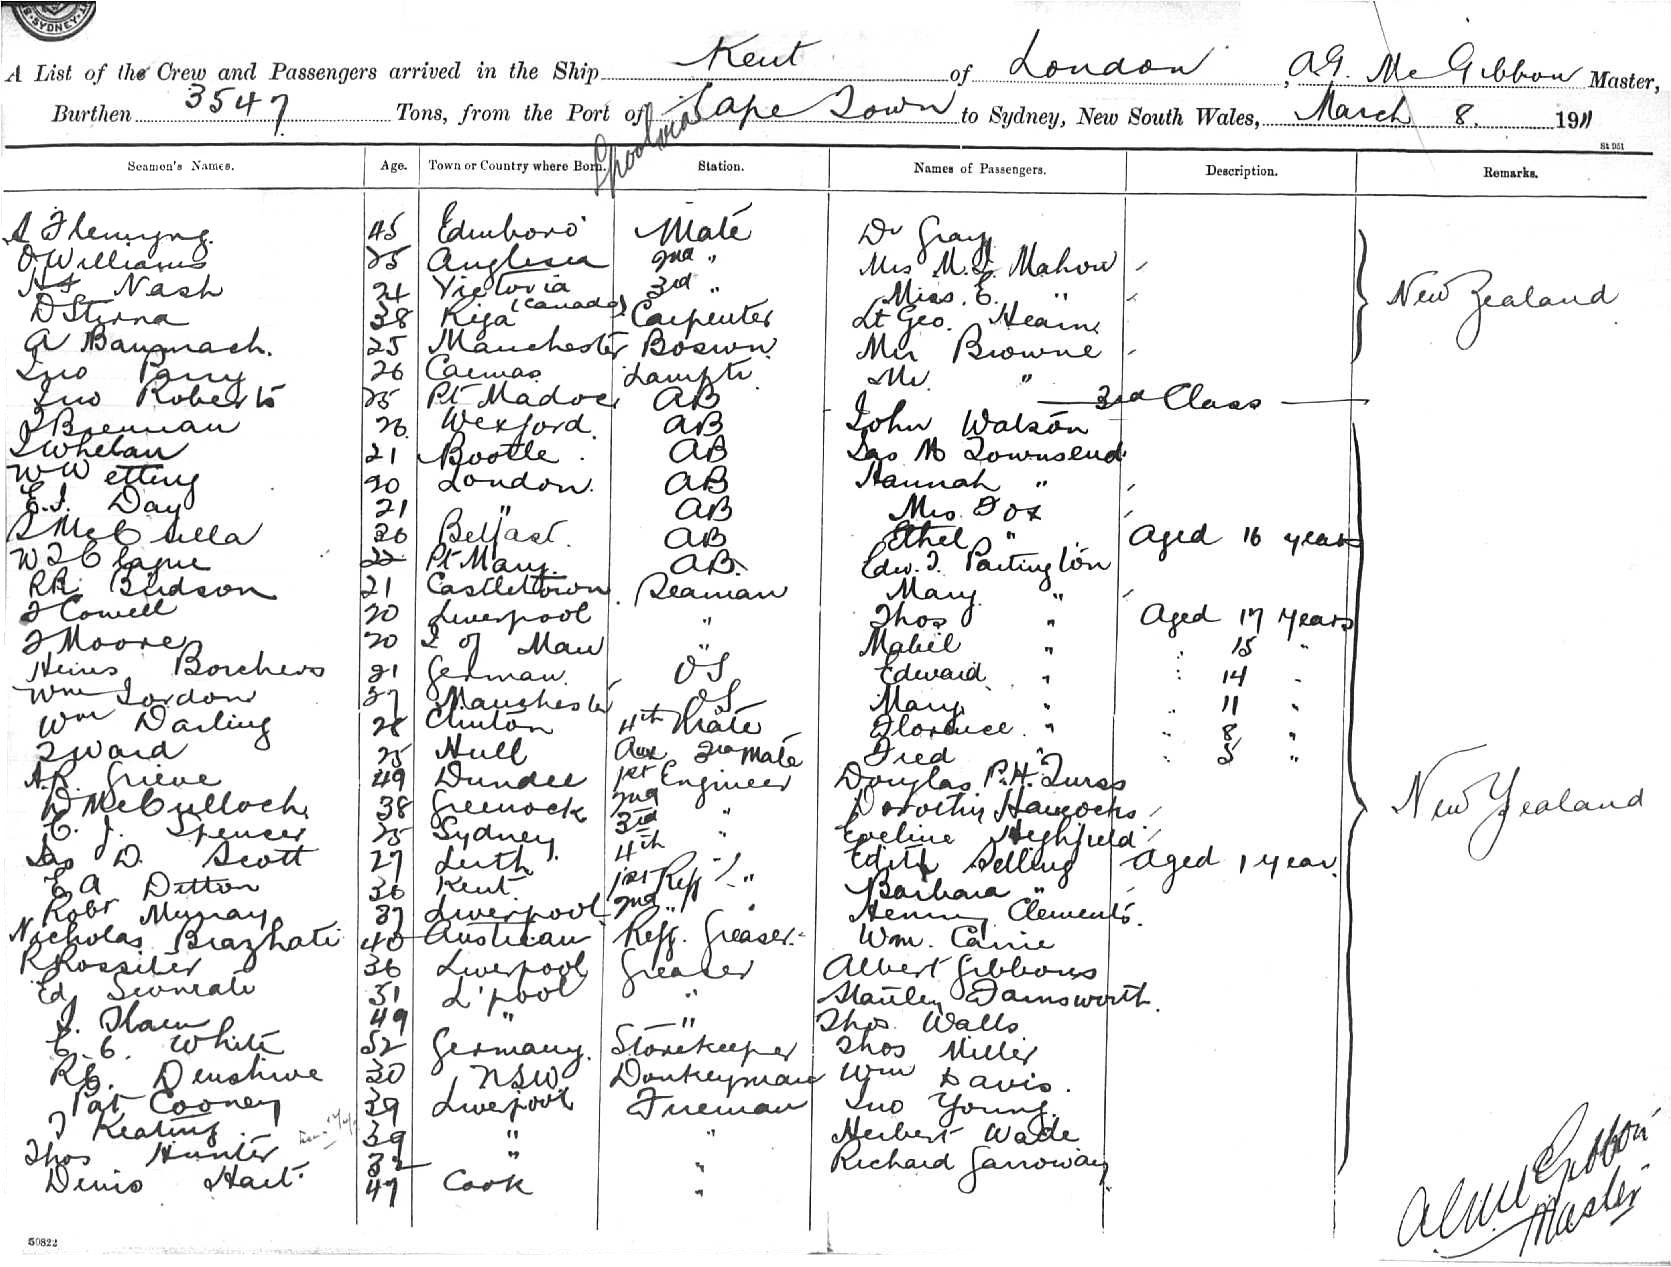 SYDNEY
A List of the Crew and Passengers arrived in the Ship Kent of London, A.G. McGibbon Master,
Burthen 3547 Tons, from the Port of Cape Town to Sydney, New South Wales, March 8. 1911
St 951
Seamen's Names. Age. Town or Country where Born. Station. Names of Passengers. Description. Remarks.
45 Edinboro' Mate Dr Gray
O Williams 25 Anglesea 2nd " Mrs M. Mahow
Nash 24 Victoria (Canada) 3rd " Miss E. " New Zealand
D Sterna 38 Riga Carpenter Lt Geo. Hearn
A Bangnach. 25 Manchester Boswn Mrs Browne
Jno Parry 26 Lamptr Mr. "
Jno Roberts 25 Pt Madoc AB 3rd Class
J Brennan 26 Wexford. AB John Watson
J Whelan 21 Bootle. AB Jas Townsend
W Wetting 20 London. AB Hannah "
E.J. Day 21 " AB Mrs. Fox
26 Belfast. AB Ethel " Aged 16 years
22 Pt Mary. AB. Edw. J. Partington
R R Birdson 21 Castletown Seaman Mary "
J Cowell 20 Liverpool " Thos " Aged 17 Years
J Moore 20 I of Man " Mabel " " 15 "
Heins Borchers 21 German. OS Edward " " 14 "
Wm Jordon 27 Manchester OS Mary " " 11 "
Wm Darling 28 Clinton 4th Mate Florence " " 8 "
J Ward 25 Hull Aux 3rd Mate Fred " " 5 "
A.R. Grieve 49 Dundee 1st Engineer Douglas P.H.
D McCulloch 38 Greenock 2nd " Dorothy Haycocks New Zealand
C. J. Spencer 25 Sydney 3rd " Eveline Highfield
Jas D. Scott 27 Leith 4th " Edith Selling Aged 1 year
E A Ditton 36 Kent 1st Refr " Barbara "
Robt Murray 37 Liverpool 2nd " " Henry Clements.
Nicholas Brazhati 40 Austrian Refr. Greaser. Wm. Carrie
R Rossiter 36 Liverpool Greaser Albert Gibbons
Ed 31 L'pool " Stanley Farnsworth.
49 " " Thos. Walls
C. C. White 52 Germany. Storekeeper Thos Miller
Denshire 30 NSW Donkeyman Wm Davis.
Pat Cooney 39 Liverpool Fireman Jno Young.
J Keating 39 " " Herbert Wade
Thos Hunter 32 " " Richard Garroway
Denis Hart. 47 Cook "
Master
50822